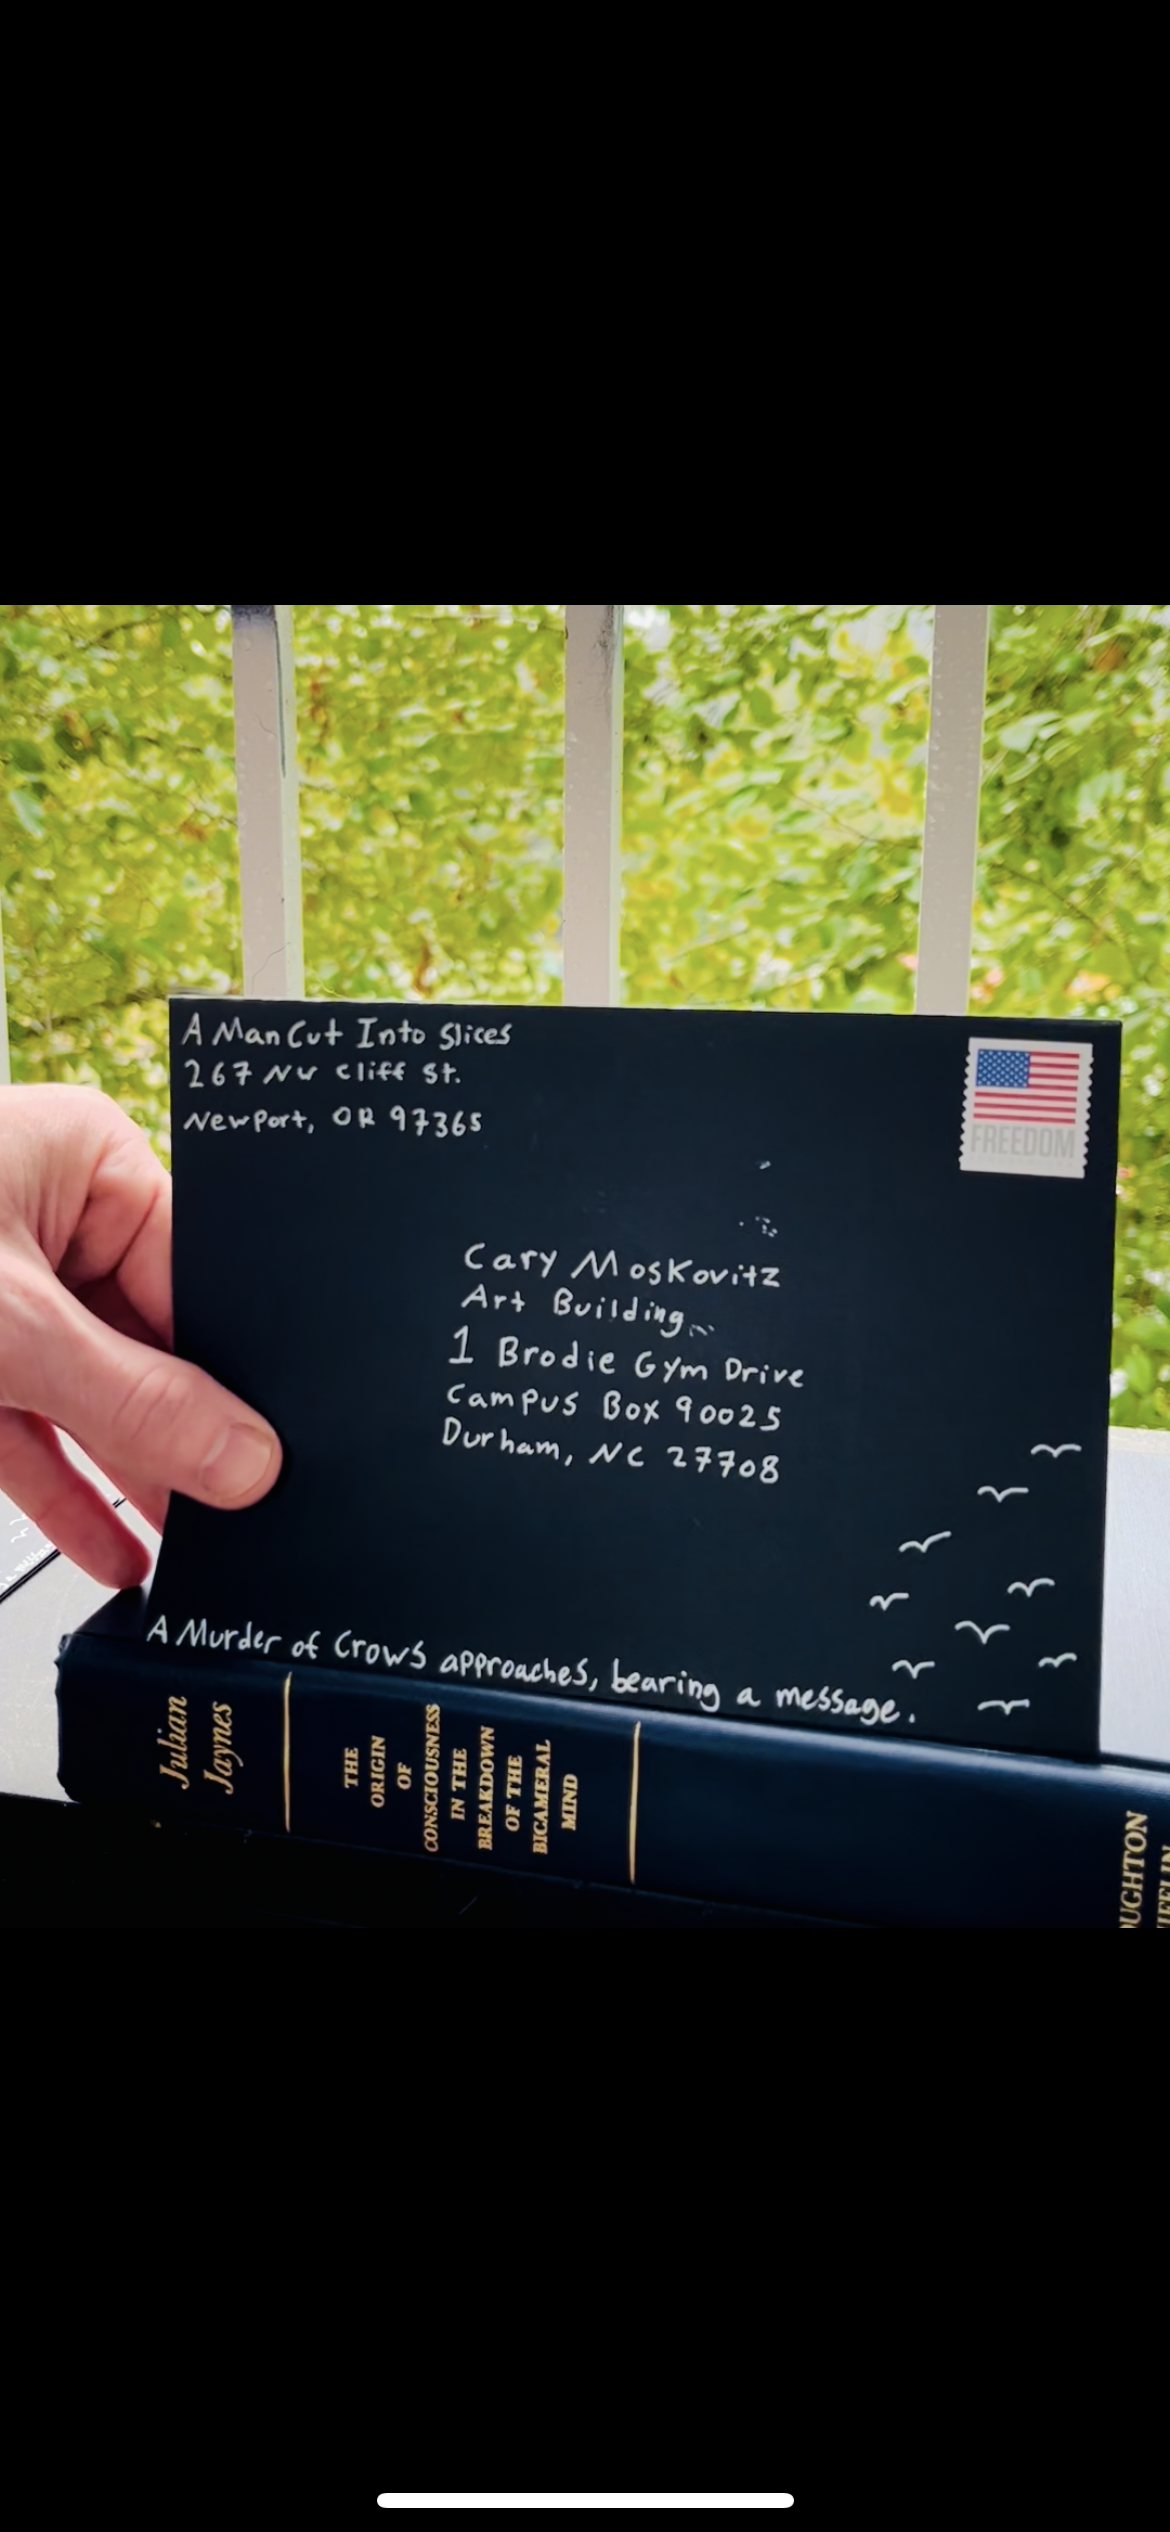 A Man Cut Into Slices
267 NW Cliff St.
Newport, OR 97365
FREEDOM
Cary Moskovitz
Art Building
1 Brodie Gym Drive
Campus Box 90025
Durham, NC 27708
A Murder of Crows approaches, bearing a message.
Julian
Jaynes
THE
ORIGIN
OF
CONSCIOUSNESS
IN THE
BREAKDOWN
OF THE
BICAMERAL
MIND